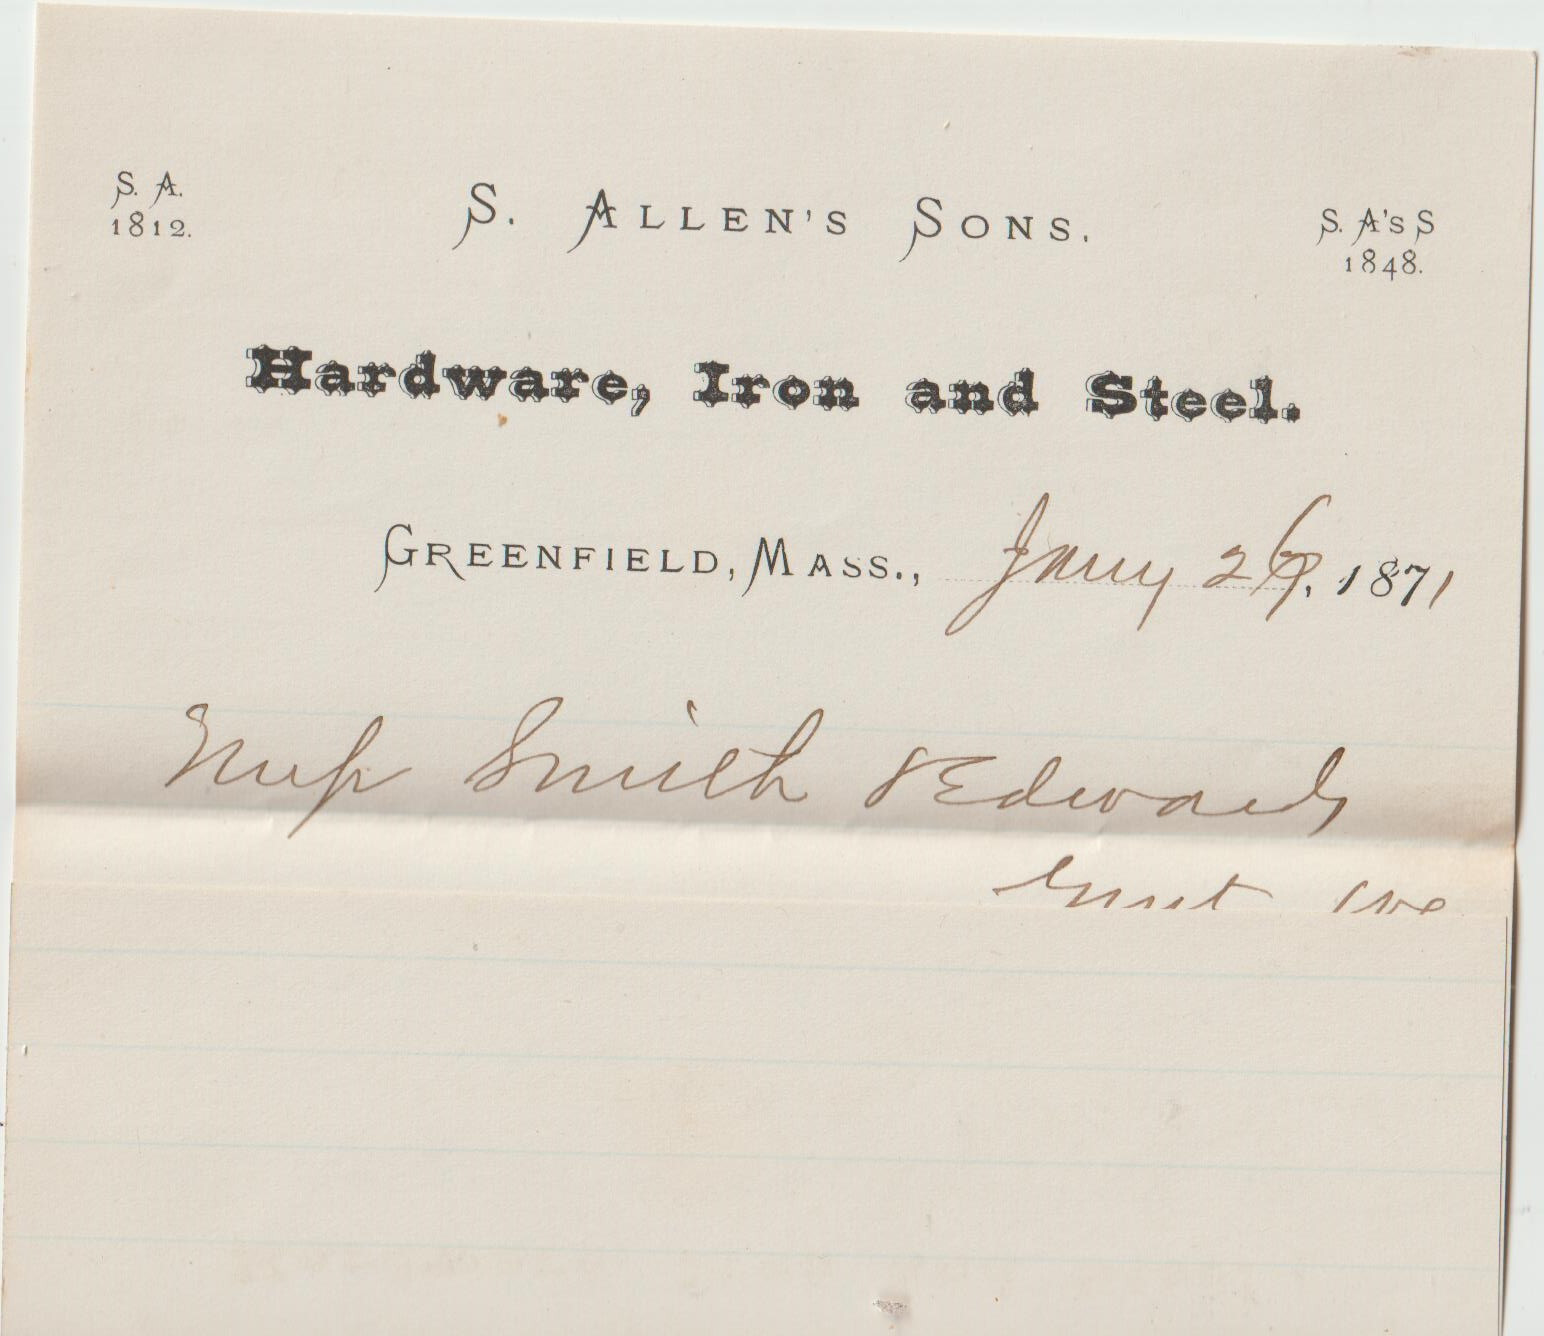 S. A.
1812.
S. ALLEN'S SONS.
S. A's S
1848.
Hardware, Iron and Steel.
GREENFIELD, MASS., Jany 26, 1871
Mess Smith & Edwards
Gent